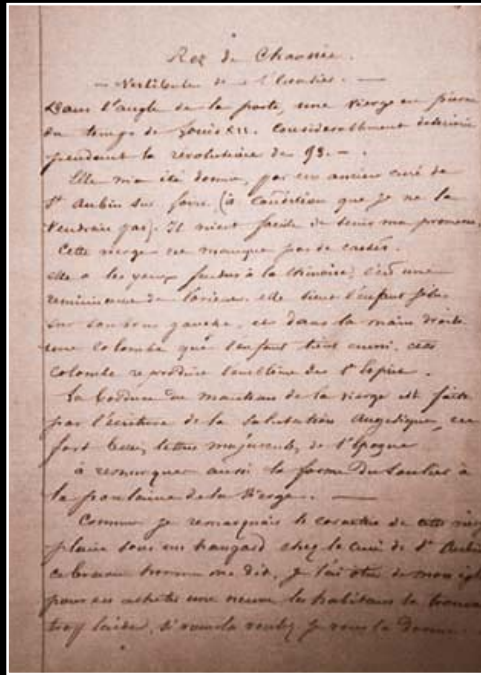 Rez de Chaussée.
— Vestibule de l'Escalier. —
Dans l'angle de la porte, une vierge en pierre
du temps de Louis XII. Considérablement détériorée
pendant la révolution de 93. — .
Elle m'a été donné, par un ancien curé de
St Aubin sur (à condition que je ne la
vendrais pas). Il m'est facile de tenir ma promesse.
Cette vierge ne manque pas de cachet.
elle a les yeux fendus à la Chinoise, c'est une
reminiscence de elle tient l'enfant Jésus
sur son bras gauche, et dans la main droite
une colombe que l'enfant tient aussi. cette
colombe reproduit l'emblème du St Esprit.
La bordure du manteau de la vierge est faite
par l'écriture de la Salutation Angélique, en
fort lettres majuscules de l'époque
à remarquer aussi la forme du soulier à
la poulaine de la Vierge. —
Comme je remarquais le caractère de cette vierge
placée sous un hangard chez le curé de St Aubin
ce brave homme me dit, je l'ai de mon
pour en acheter une neuve les habitans la
trop laide, si vous la voulez je vous la donne.